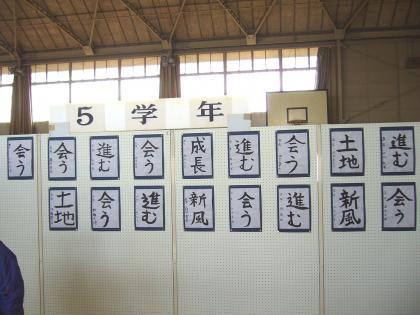 5学年
会う
会う
進む
会う
成長
進む
会う
土地
進む
土地
会う
進む
新風
会う
進む
新風
会う